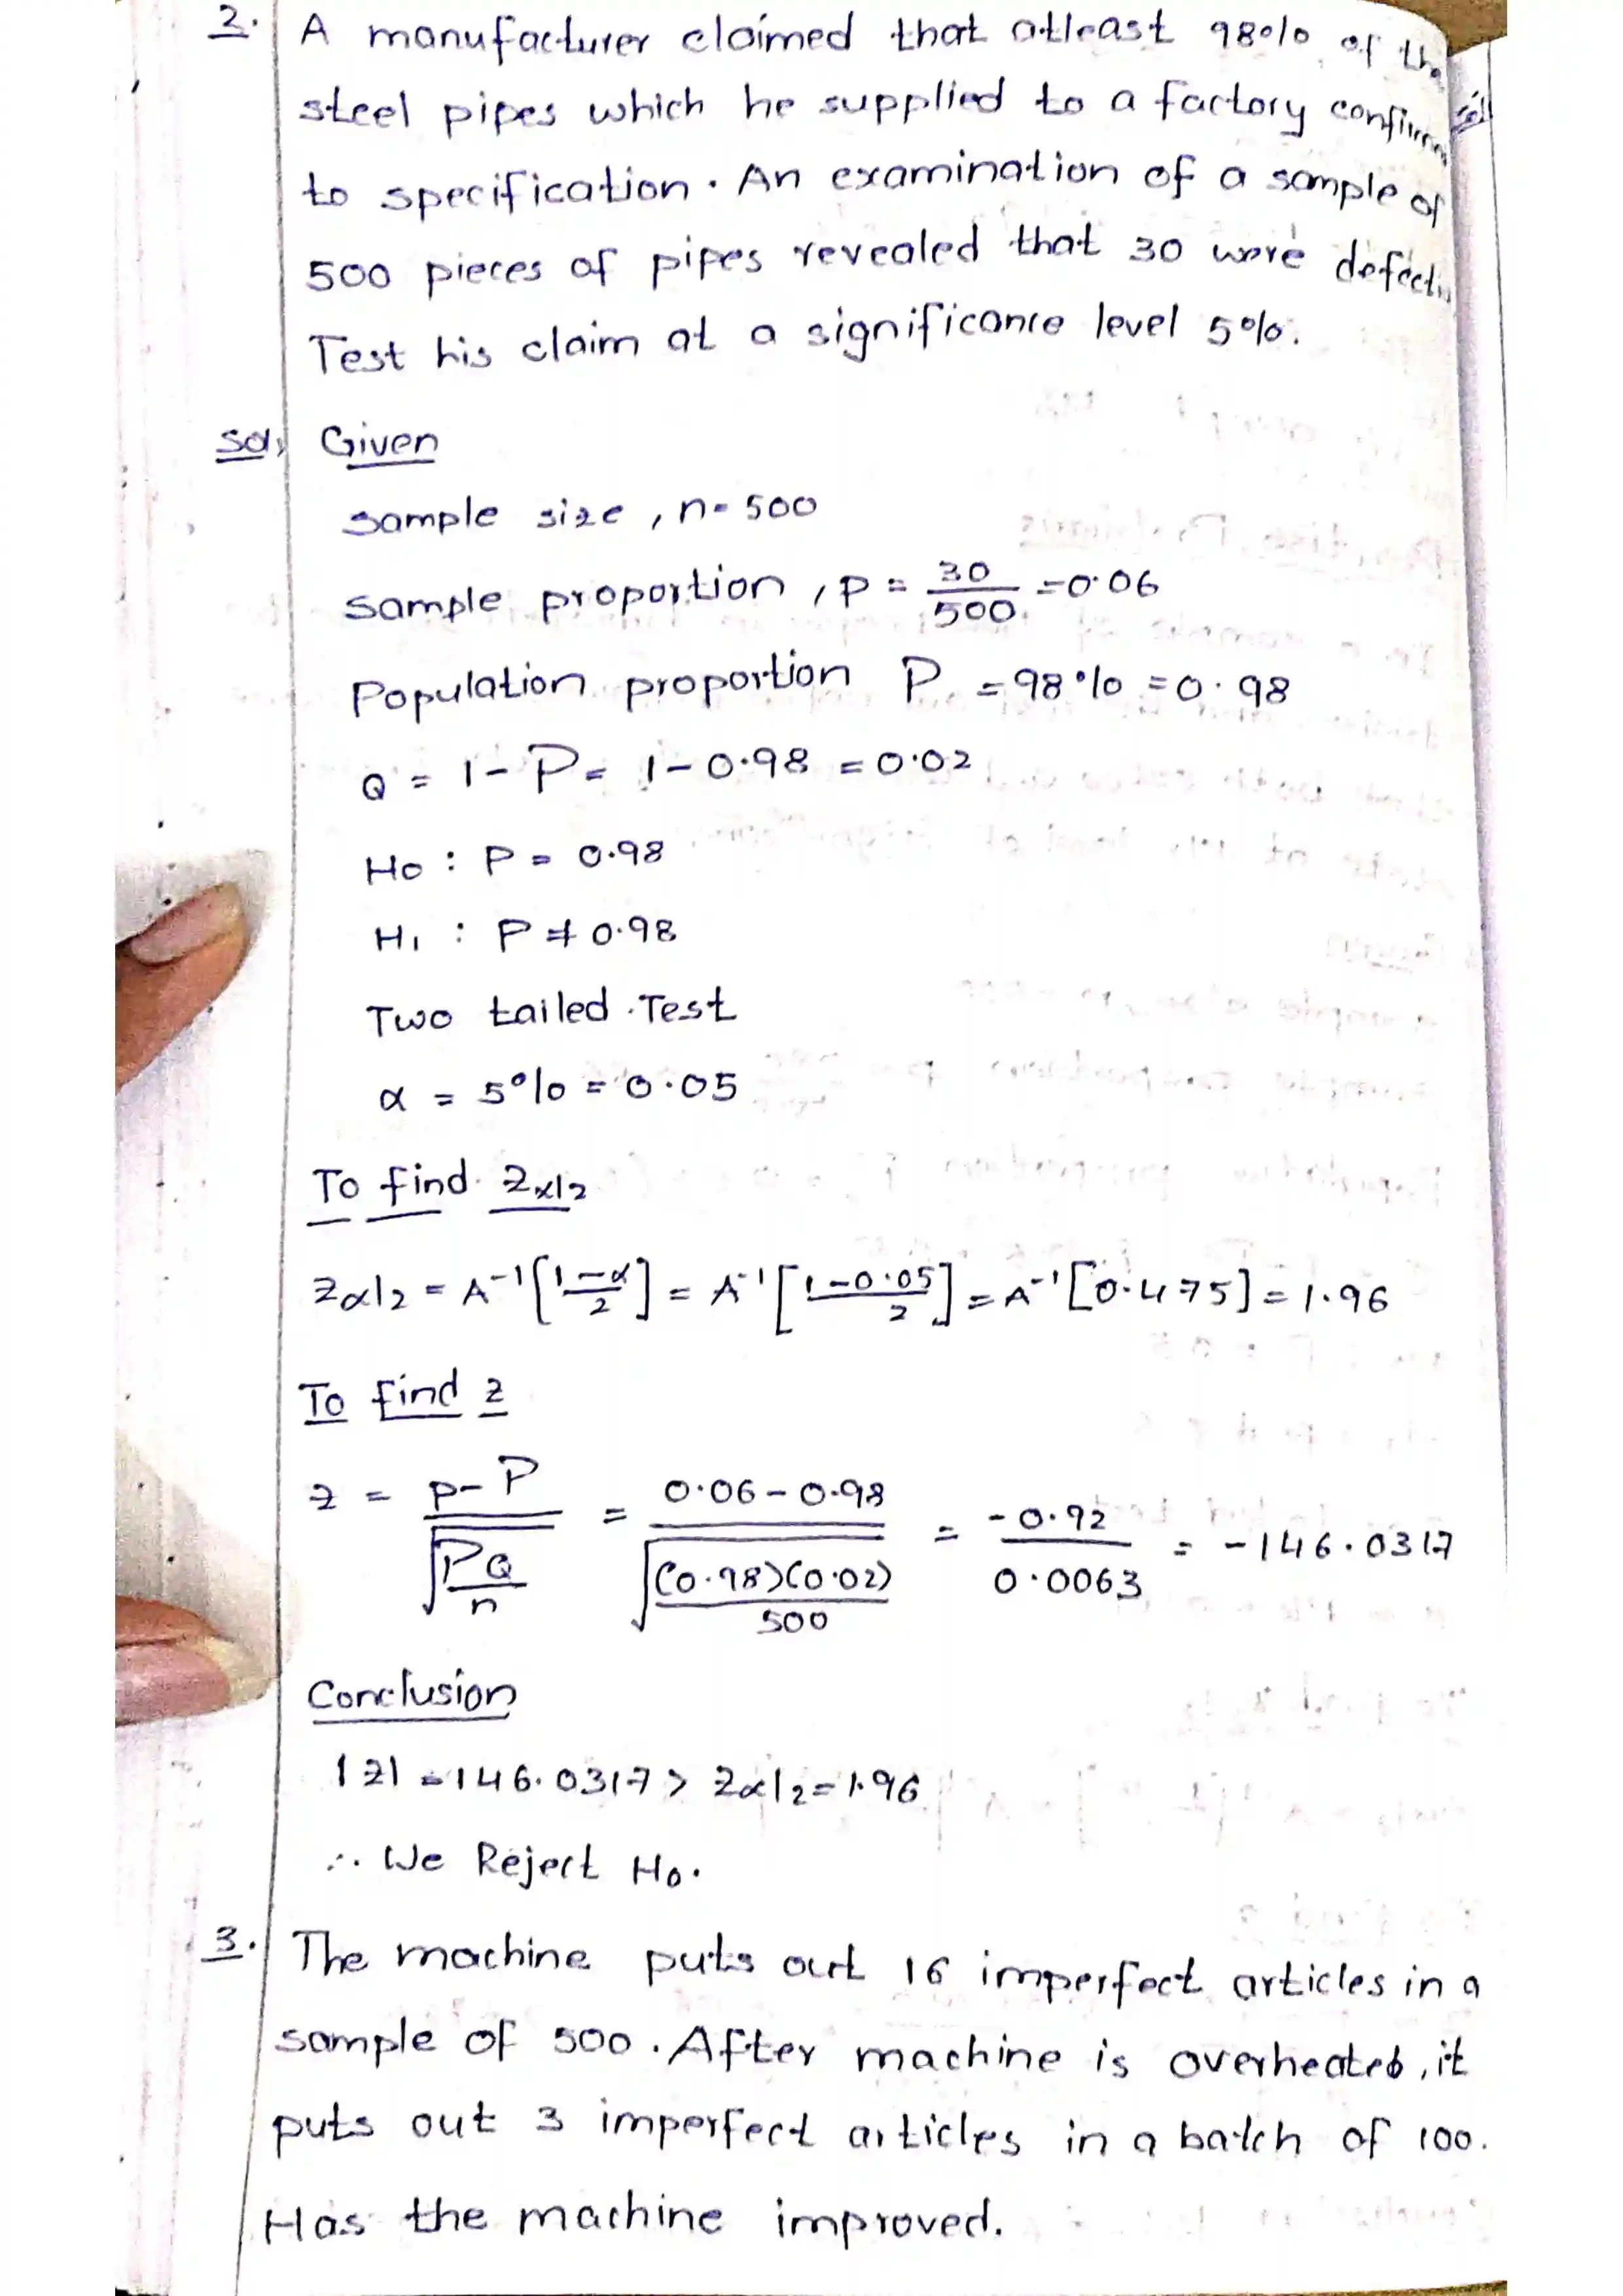 2. A manufacturer claimed that atleast 98% of the
steel pipes which he supplied to a factory
to specification. An examination of a sample of
500 pieces of pipes revealed that 30 were
Test his claim at a significance level 5%.
Sol, Given
sample size, n = 500
sample proportion, p = 30/500 = 0.06
Population proportion P = 98% = 0.98
Q = 1 - P = 1 - 0.98 = 0.02
H0 : P = 0.98
H1 : P ≠ 0.98
Two tailed Test
α = 5% = 0.05
To find Zα/2
Zα/2 = A⁻¹[1-α/2] = A⁻¹[1-0.05/2] = A⁻¹[0.475] = 1.96
To find z
z = p-P/√(PQ/n) = 0.06-0.98/√((0.98)(0.02)/500) = -0.92/0.0063 = -146.0317
Conclusion
|z| = 146.0317 > Zα/2 = 1.96
∴ We Reject H0.
3. The machine puts out 16 imperfect articles in a
sample of 500. After machine is overheated, it
puts out 3 imperfect articles in a batch of 100.
Has the machine improved.